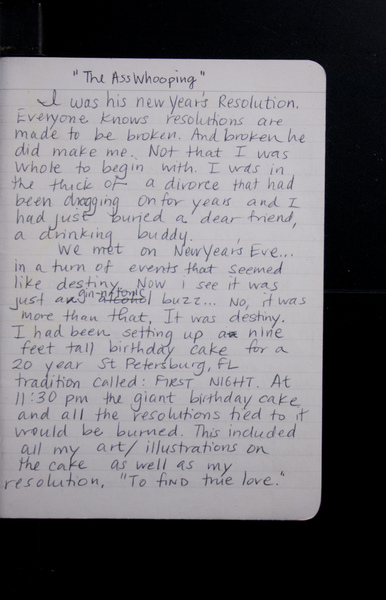 "The Ass Whooping"
I was his new Year's Resolution.
Everyone knows resolutions are
made to be broken. And broken he
did make me. Not that I was
whole to begin with. I was in
the thick of a divorce that had
been dragging on for years and I
had just buried a dear friend,
a drinking buddy.
We met on New Year's Eve...
in a turn of events that seemed
like destiny. Now I see it was
just a gin-n-tonic buzz... No, it was
more than that, It was destiny.
I had been setting up a nine
feet tall birthday cake for a
20 year St Petersburg, FL
tradition called: FIRST NIGHT. At
11:30 pm the giant birthday cake
and all the resolutions tied to it
would be burned. This included
all my art/illustrations on
the cake as well as my
resolution, "To find true love."